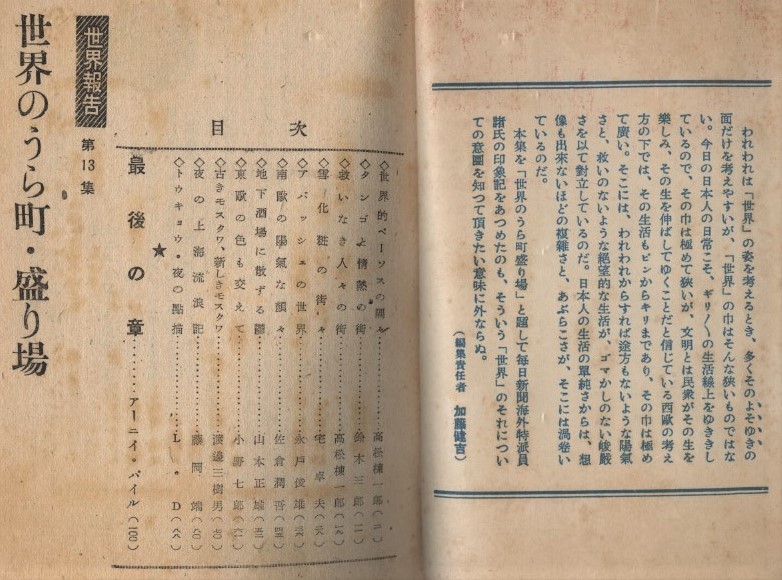 われわれは「世界」の姿を考えるとき、多くそのよそゆきの
面だけを考えやすいが、「世界」の巾はそんな狭いものではな
い。今日の日本人の日常こそ、ギリ〱の生活線上をゆききし
ているので、その巾は極めて狭いが、文明とは民衆がその生を
楽しみ、その生を伸ばしてゆくことだと信じている西歐の考え
方の下では、その生活もピンからキリまであり、その巾は極め
て廣い。そこには、われわれからすれば途方もないような陽氣
さと、救いのないような絶望的な生活が、ゴマかしのない峻嚴
さを以て対立しているのだ。日本人の生活の單純さからは、想
像も出來ないほどの複雜さと、あぶらこさが、そこには渦巻い
ているのだ。
本集を「世界のうら町盛り場」と題して毎日新聞海外特派員
諸氏の印象記をあつめたのも、そういう「世界」のそれについ
ての意圖を知つて頂きたい意味に外ならぬ。
(編集責任者 加藤健吉)
世界報告
第13集
世界のうら町・盛り場
目次
◇世界的ペーソスの隅々………高松棟一郎(二)
◇タンゴと情熱の街………鈴木三郎(一一)
◇救いなき人々の街………高松棟一郎(一九)
◇雪化粧の街々………宅卓夫(二八)
◇アパッシュの世界………永戸俊雄(三六)
◇南歐の陽氣な顔々………佐倉潤吾(四四)
◇地下酒場に散ずる鬱………山本正雄(五二)
◇東歐の色も交えて………小野七郎(六一)
◇古きモスクワ、新しきモスクワ………渡邊三樹男(七〇)
◇夜の上海流浪記………藤岡端(八〇)
◇トウキョウ・夜の點描………L・D(八八)
★
最後の章………アーニイ・パイル(一〇〇)